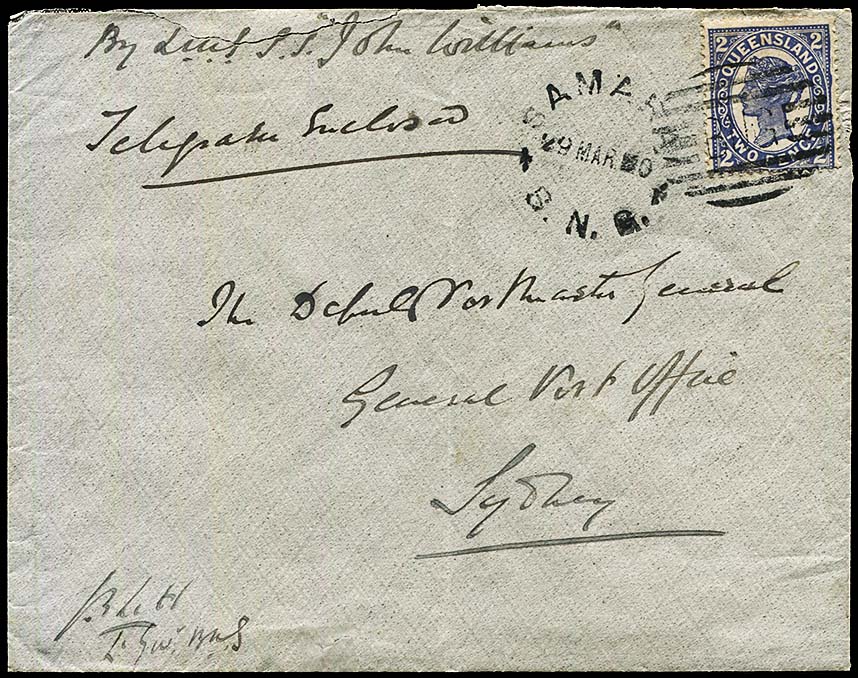 By S.S. "John Williams"
Telegram Enclosed
SAMARAI
29 MAR
B. N. G.
2 QUEENSLAND 2
2 TWO PENCE 2
The Deputy Postmaster General
General Post Office
Sydney